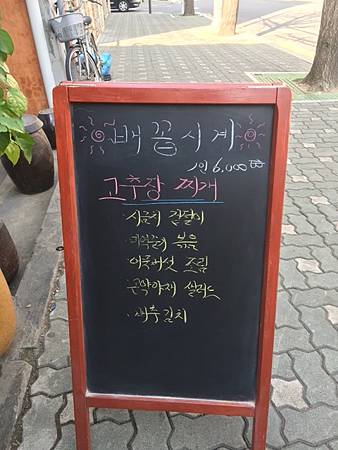 배꼽시계
1인 6,000
고추장 찌개
·시금치 겉절이
·미역줄기 볶음
·어묵버섯 조림
·곤약야채 샐러드
·배추김치